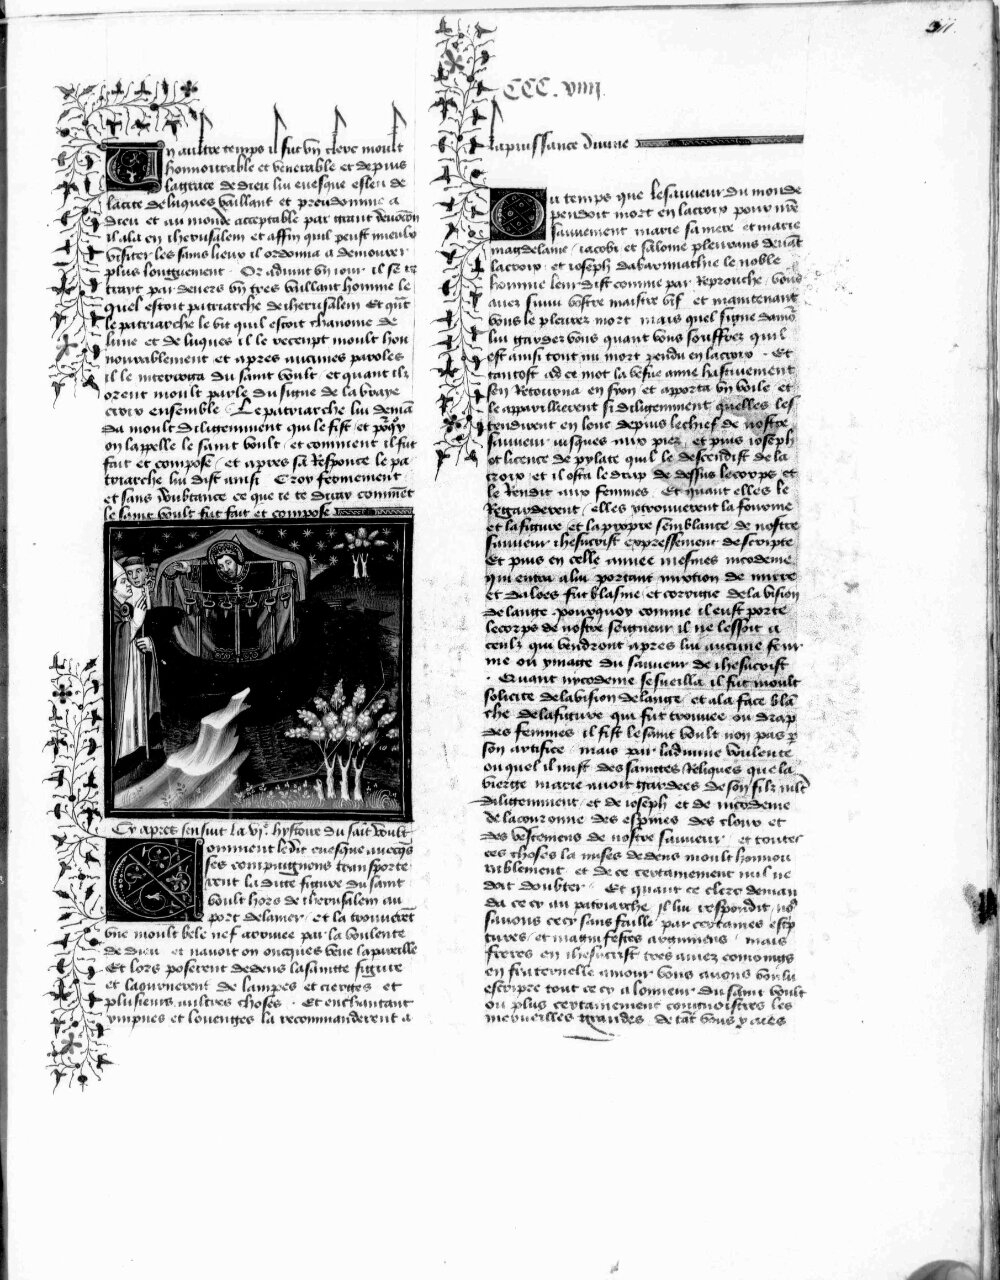 CCC. viiij.
En aultre temps il fut vn clerc moult
honnourable et venerable et depuis
la grace de dieu lui euesque esleu de
la cite de luques vaillant et preudomme a
dieu et au monde acceptable par grant deuocion
il ala en iherusalem et affin quil peust mieulx
visiter les sains lieux il ordonna a demourer
plus longuement . Or aduint vn iour il se re
trayt par deuers vn tres vaillant homme le
quel estoit patriarche de iherusalem Et qnt
le patriarche le vit quil estoit chanoine de
lune et de luques il le receupt moult hon
nourablement et apres aucunes paroles
il le interroga du saint voult et quant ilz
orent moult parle du signe de la vraye
croix ensemble . Le patriarche lui deman
da moult diligemment qui le fist et porquoy
on lappelle le saint voult / et comment il fut
fait et compose / et apres sa responce le pa
triarche lui dist ainsi Croy fermement
et sans doubtance ce que ie te diray comment
le saint voult fut fait et compose
Cy apres sensuit la vje hystoire du sait voult
Comment ledit euesque auecqs
ses compaignons transporte
rent la dite figure du saint
voult hors de iherusalem au
port de la mer / et la trouuerent
vne moult bele nef arriuee par la voulente
de dieu et nauoit on oncques veue la pareille
Et lors poserent dedens la saincte figure
et laournerent de lampes et cierges et
plusieurs aultres choses . Et en chantant
ympnes et louenges la recommanderent a
la puissance diuine
Ou temps que le sauueur du monde
pendoit mort en la croix pour nre
sauuement marie sa mere et marie
magdelaine / iacobi et salome pleurans deuat
la croix et ioseph dabarimathie le noble
homme leur dist comme par reprouche / vous
auez suiui vostre maistre vif et maintenant
vous le pleurez mort mais quel signe damor
lui gardez vous quant vous souffrez quil
est ainsi tout nu mort pendu en la croix . Et
tantost ad ce mot la vefue anne hastiuement
sen retourna en syon et apporta vn voile et
le appareillierent si diligemment quelles les
tendirent en lonc depuis le chief de nostre
sauueur iusques aux piez et puis ioseph
ot licence de pylate quil le descendist de la
croix et il osta le drap de dessus le corps et
le rendit aux femmes Et quant elles le
regarderent / elles y trouuerent la fourme
et la figure et la propre semblance de nostre
sauueur ihesucrist expressement descripte
Et puis en celle annee mesmes nicodeme
qui entra a lui portant mixtion de mirre
et daloes fut blasme et corrigie de la vision
de lange pourquoy comme il eust porte
le corps de nostre seigneur il ne lessoit a
ceulz qui vendront apres lui aucune four
me ou ymage du sauueur de ihesucrist
. Quant nycodeme sesueilla il fut moult
solicite de la vision de lange et a la face bla
che de la figure qui fut trouuee ou drap
des femmes il fist le saint voult non pas p
son artifice mais par la diuine voulente
ou quel il mist des sainctes reliques que la
vierge marie auoit gardees de son filz mlt
diligemment et de ioseph et de nicodeme
de la couronne des espines des cloux et
des vestemens de nostre sauueur et toutes
ces choses la mises dedens moult honnou
rablement et de ce certainement nul ne
doit doubter . Et quant ce clerc deman
da ce cy au patriarche Il lui respondit / no9
sauons cecy sans faille par certaines escrip
tures et magnifestes argumens mais
freres en ihesucrist tres amez comoings
en fraternelle amour vous auons voulu
escripre tout ce cy a lonneur du saint voult
ou plus certainement congnoistres les
merueilles grandes de tat vous y croies